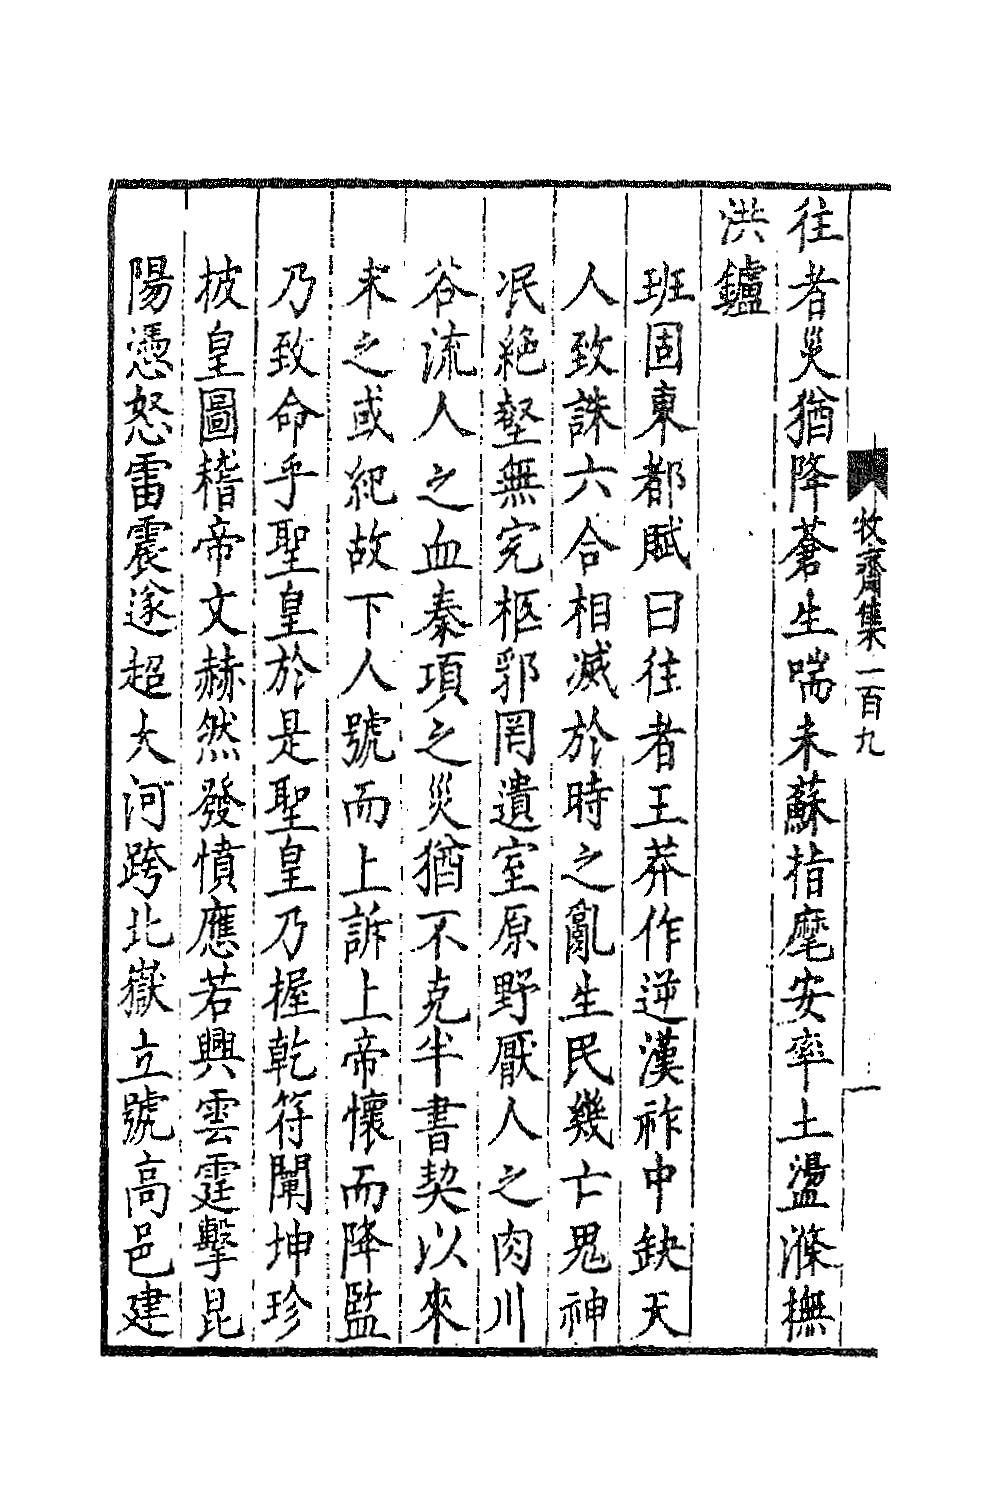 往者災猶降蒼生喘未蘇指麾安率土盪滌撫
洪鑪
班固東都賦曰往者王莽作逆漢祚中缺天
人致誅六合相滅於時之亂生民幾亡鬼神
泯絕壑無完柩郛罔遺室原野厭人之肉川
谷流人之血秦項之災猶不克半書契以來
未之或紀故下人號而上訴上帝懷而降監
乃致命乎聖皇於是聖皇乃握乾符闡坤珍
披皇圖稽帝文赫然發憤應若興雲霆擊昆
陽憑怒雷震遂超大河跨北嶽立號高邑建
牧齋集一百九
一